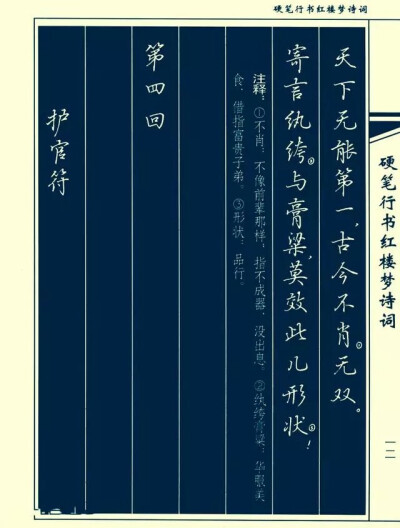 硬笔行书红楼梦诗词
天下无能第一，古今不肖①无双。
寄言纨绔②与膏粱，莫效此儿形状③！
注释：①不肖：不像前辈那样，指不成器、没出息。②纨绔膏粱：华服美
食，借指富贵子弟。③形状：品行。
第四回
护官符
硬笔行书红楼梦诗词
一一